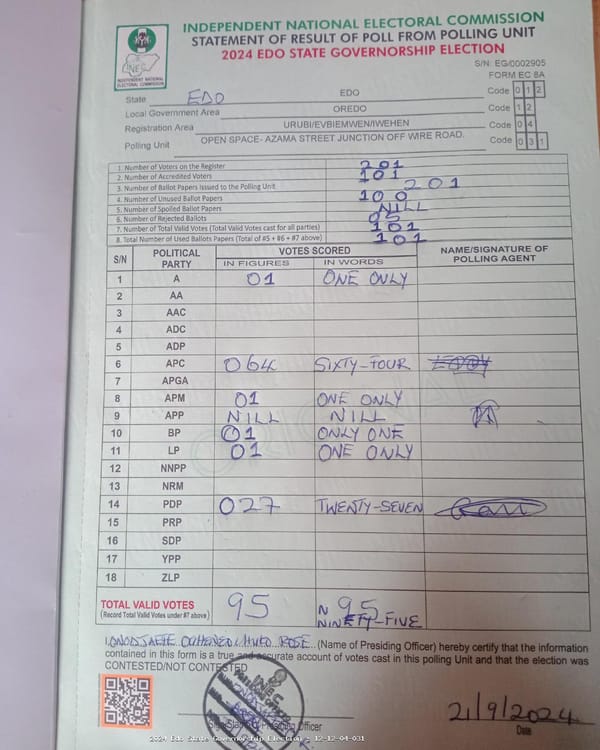 INDEPENDENT NATIONAL ELECTORAL COMMISSION
STATEMENT OF RESULT OF POLL FROM POLLING UNIT
2024 EDO STATE GOVERNORSHIP ELECTION
INEC
INDEPENDENT NATIONAL
ELECTORAL COMMISSION
S/N: EG/0002905
FORM EC 8A
State EDO EDO Code 0 1 2
Local Government Area OREDO Code 1 2
Registration Area URUBI/EVBIEMWEN/IWEHEN Code 0 4
Polling Unit OPEN SPACE- AZAMA STREET JUNCTION OFF WIRE ROAD. Code 0 3 1
1. Number of Voters on the Register 201
2. Number of Accredited Voters 101
3. Number of Ballot Papers Isssued to the Polling Unit 201
4. Number of Unused Ballot Papers 100
5. Number of Spoiled Ballot Papers NILL
6. Number of Rejected Ballots 05
7. Number of Total Valid Votes (Total Valid Votes cast for all parties) 101
8. Total Number of Used Ballots Papers (Total of #5 + #6 + #7 above) 101
S/N POLITICAL PARTY VOTES SCORED NAME/SIGNATURE OF POLLING AGENT
IN FIGURES IN WORDS
1 A 01 ONE ONLY
2 AA
3 AAC
4 ADC
5 ADP
6 APC 064 SIXTY-FOUR
7 APGA
8 APM 01 ONE ONLY
9 APP NILL NILL
10 BP 01 ONLY ONE
11 LP 01 ONE ONLY
12 NNPP
13 NRM
14 PDP 027 TWENTY-SEVEN
15 PRP
16 SDP
17 YPP
18 ZLP
TOTAL VALID VOTES 95 N 95
(Record Total Valid Votes under #7 above) NINETY-FIVE
ROSE (Name of Presiding Officer) hereby certify that the information
contained in this form is a true and accurate account of votes cast in this polling Unit and that the election was
CONTESTED/NOT CONTESTED
INEC
Officer
21/9/2024
Date
2024 Edo State Governorship Election - 12-12-04-031